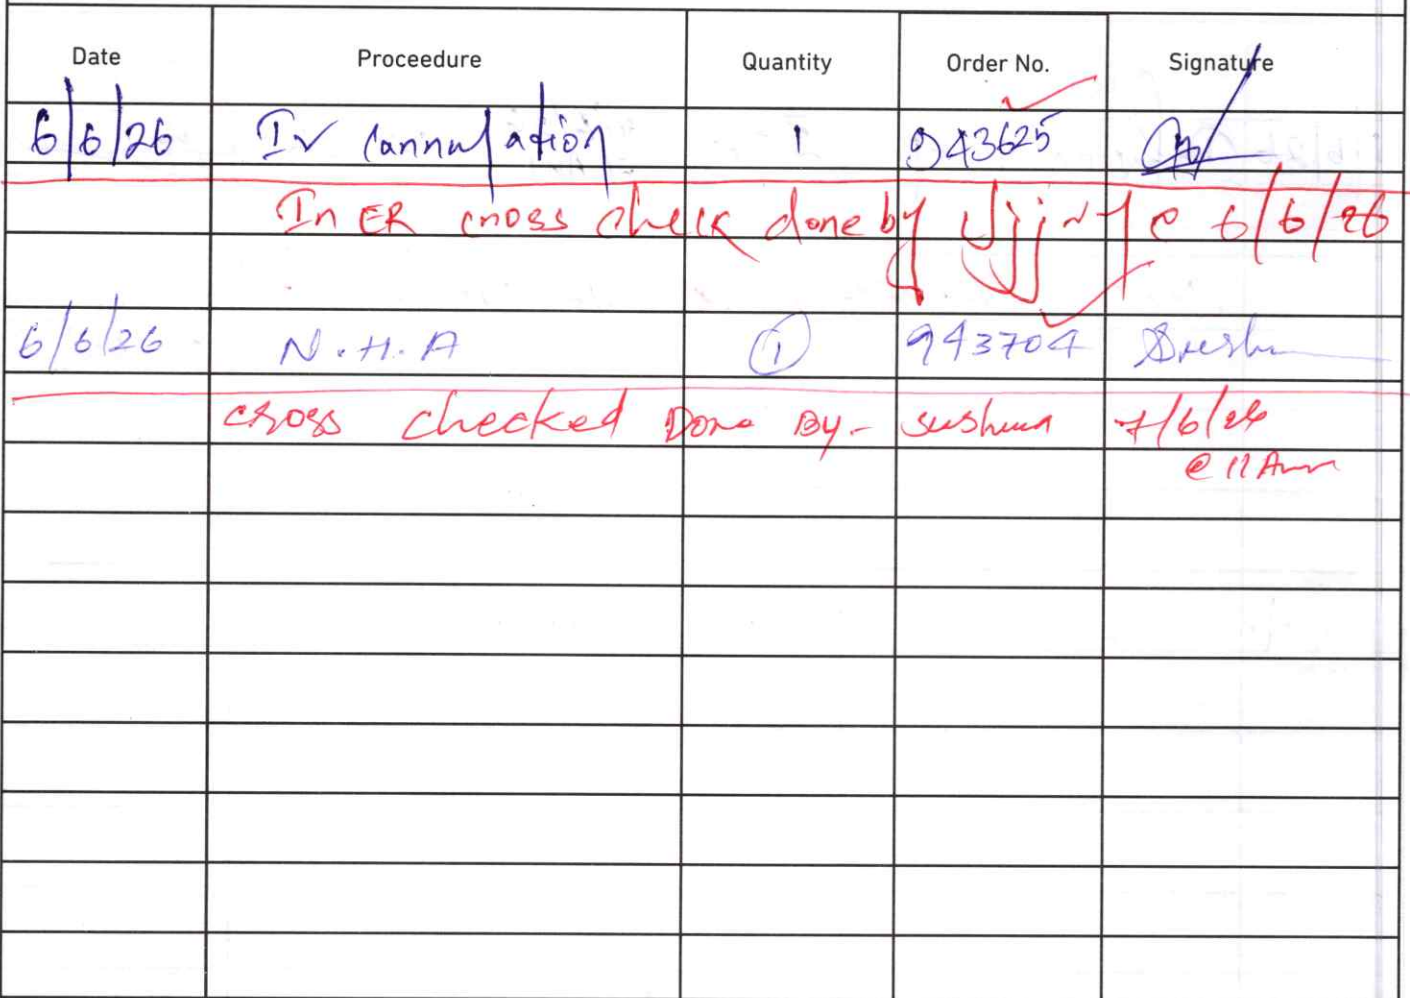 Date Proceedure Quantity Order No. Signature
6/6/26 Iv Cannulation 1 943625
In ER cross check done by @ 6/6/26
6/6/26 N.H.A 1 943704
cross checked Done By- sushma 7/6/26
@ 11 Am